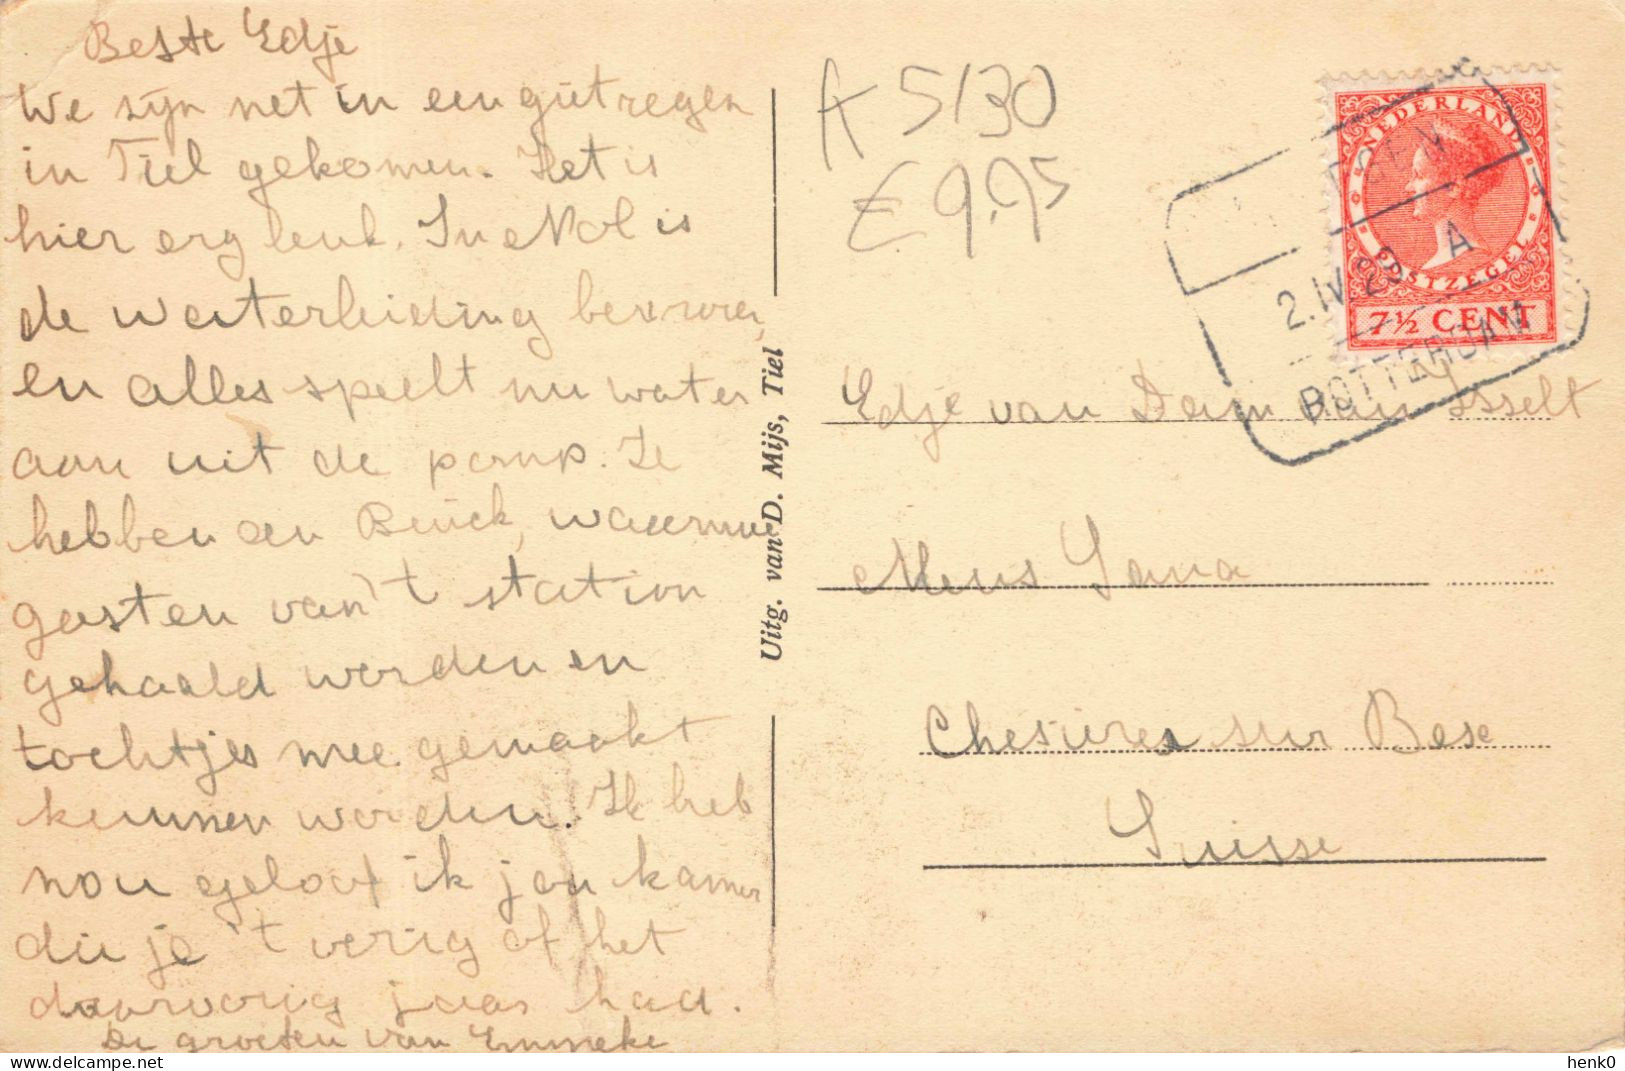 Beste Edje
We zijn net in een gietregen
in Tiel gekomen. Het is
hier erg leuk. In de Nol is
de waterleiding bevroren
en alles speelt nu water
aan uit de pomp. Ze
hebben een Buick, waarmee
gasten van 't station
gehaald worden en
tochtjes mee gemaakt
kunnen worden. Ik heb
nou geloof ik jou kamer
die je 't vorig of het
daarvorig jaar had.
De groeten van Emmeke
Uitg. van D. Mijs, Tiel
A 5130
€ 9.95
NEDERLAND
POSTZEGEL
7½ CENT
2.IV.29 A
ROTTERDAM
Edje van Dam van Isselt
Chesières sur Bex
Suisse
henk0